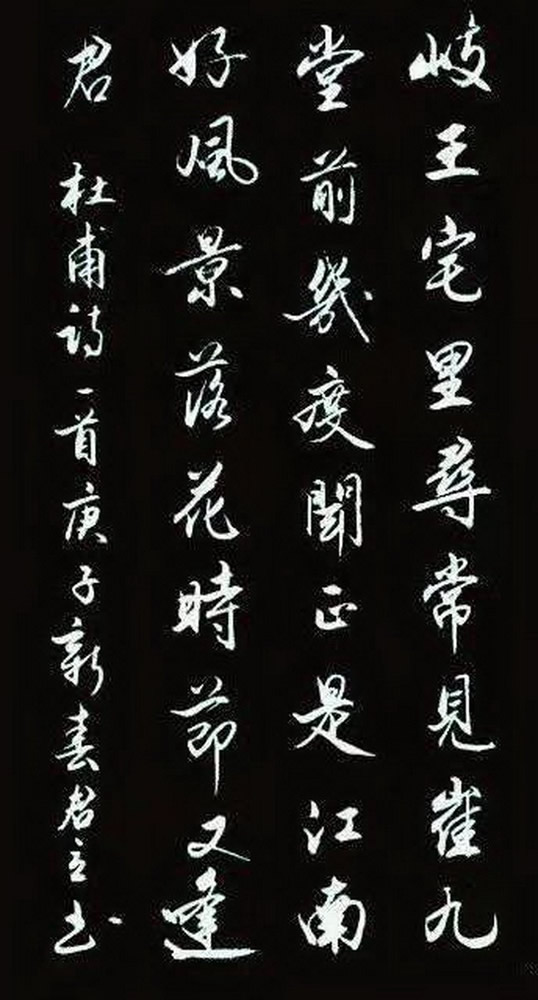 岐王宅里尋常見崔九
堂前幾度聞正是江南
好風景落花時節又逢
君 杜甫诗一首庚子新春君立书